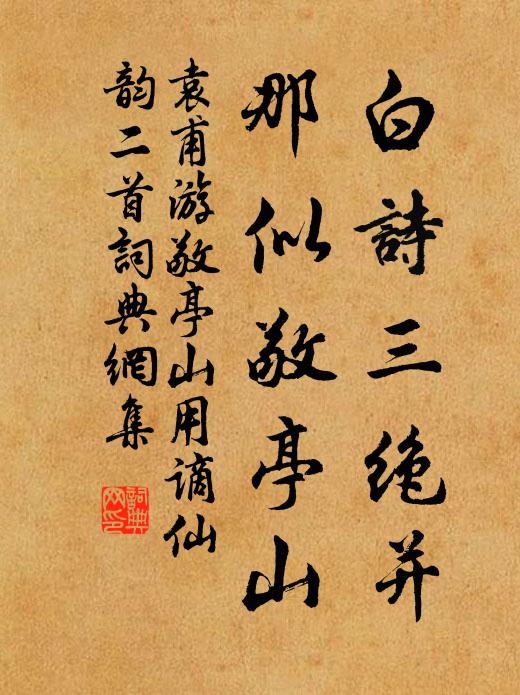 白詩三绝并
那似敬亭山
袁甫游敬亭山用谪仙
韵二首詞典網集
詞典
网印